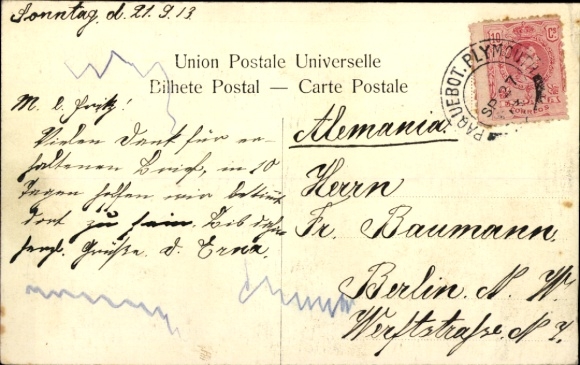 Sonntag, d. 21.9.13.
Union Postale Universelle
Bilhete Postal — Carte Postale
M. l. Fritz!
Vielen Dank für er-
haltenen Brief, in 10
Tagen hoffen wir bestimmt
dort zu sein. Bis dahin
herzl. Grüße d. Erna.
10 Cs
CORREOS
PAQUEBOT. PLYMOUTH
SP 27
Alemania.
Herrn
Fr. Baumann.
Berlin. N. W.
Werftstrasse. N